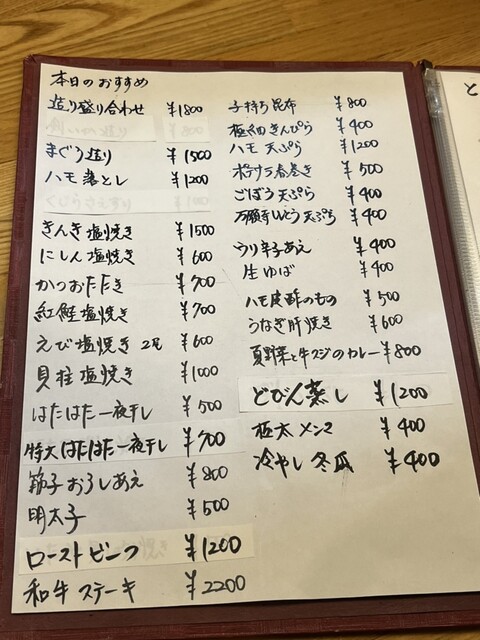 本日のおすすめ
造り盛り合わせ ¥1800
まぐろ造り ¥1500
ハモ落とし ¥1200
きんき塩焼き ¥1500
にしん塩焼き ¥600
かつおたたき ¥700
紅鮭塩焼き ¥700
えび塩焼き 2尾 ¥600
貝柱塩焼き ¥1000
はたはた一夜干し ¥500
特大はたはた一夜干し ¥700
おろしあえ ¥800
明太子 ¥500
ローストビーフ ¥1200
和牛ステーキ ¥2200
子持ち昆布 ¥800
極細きんぴら ¥400
ハモ天ぷら ¥1200
ポテサラ春巻き ¥500
ごぼう天ぷら ¥400
万願寺しとう天ぷら ¥400
ウリ辛子あえ ¥400
生ゆば ¥400
ハモ皮酢のもの ¥500
うなぎ肝焼き ¥600
夏野菜と牛スジのカレー ¥800
どびん蒸し ¥1200
極太メンマ ¥400
冷やし冬瓜 ¥400
と